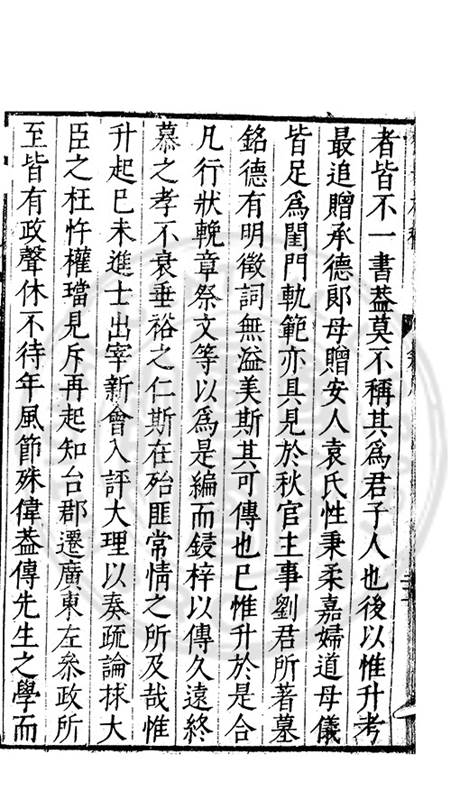 者皆不一書葢莫不稱其為君子人也後以惟升考
最追贈承德郎母贈安人袁氏性秉柔嘉婦道母儀
皆足為閨門軌範亦具見於秋官主事劉君所著墓
銘德有明徵詞無溢美斯其可傳也巳惟升於是合
凡行狀輓章祭文等以為是編而鋟梓以傳久遠終
慕之孝不衰垂裕之仁斯在殆匪常情之所及哉惟
升起巳未進士出宰新會入評大理以奏疏論救大
臣之枉忤權璫見斥再起知台郡遷廣東左叅政所
至皆有政聲休不待年風節殊偉葢傳先生之學而